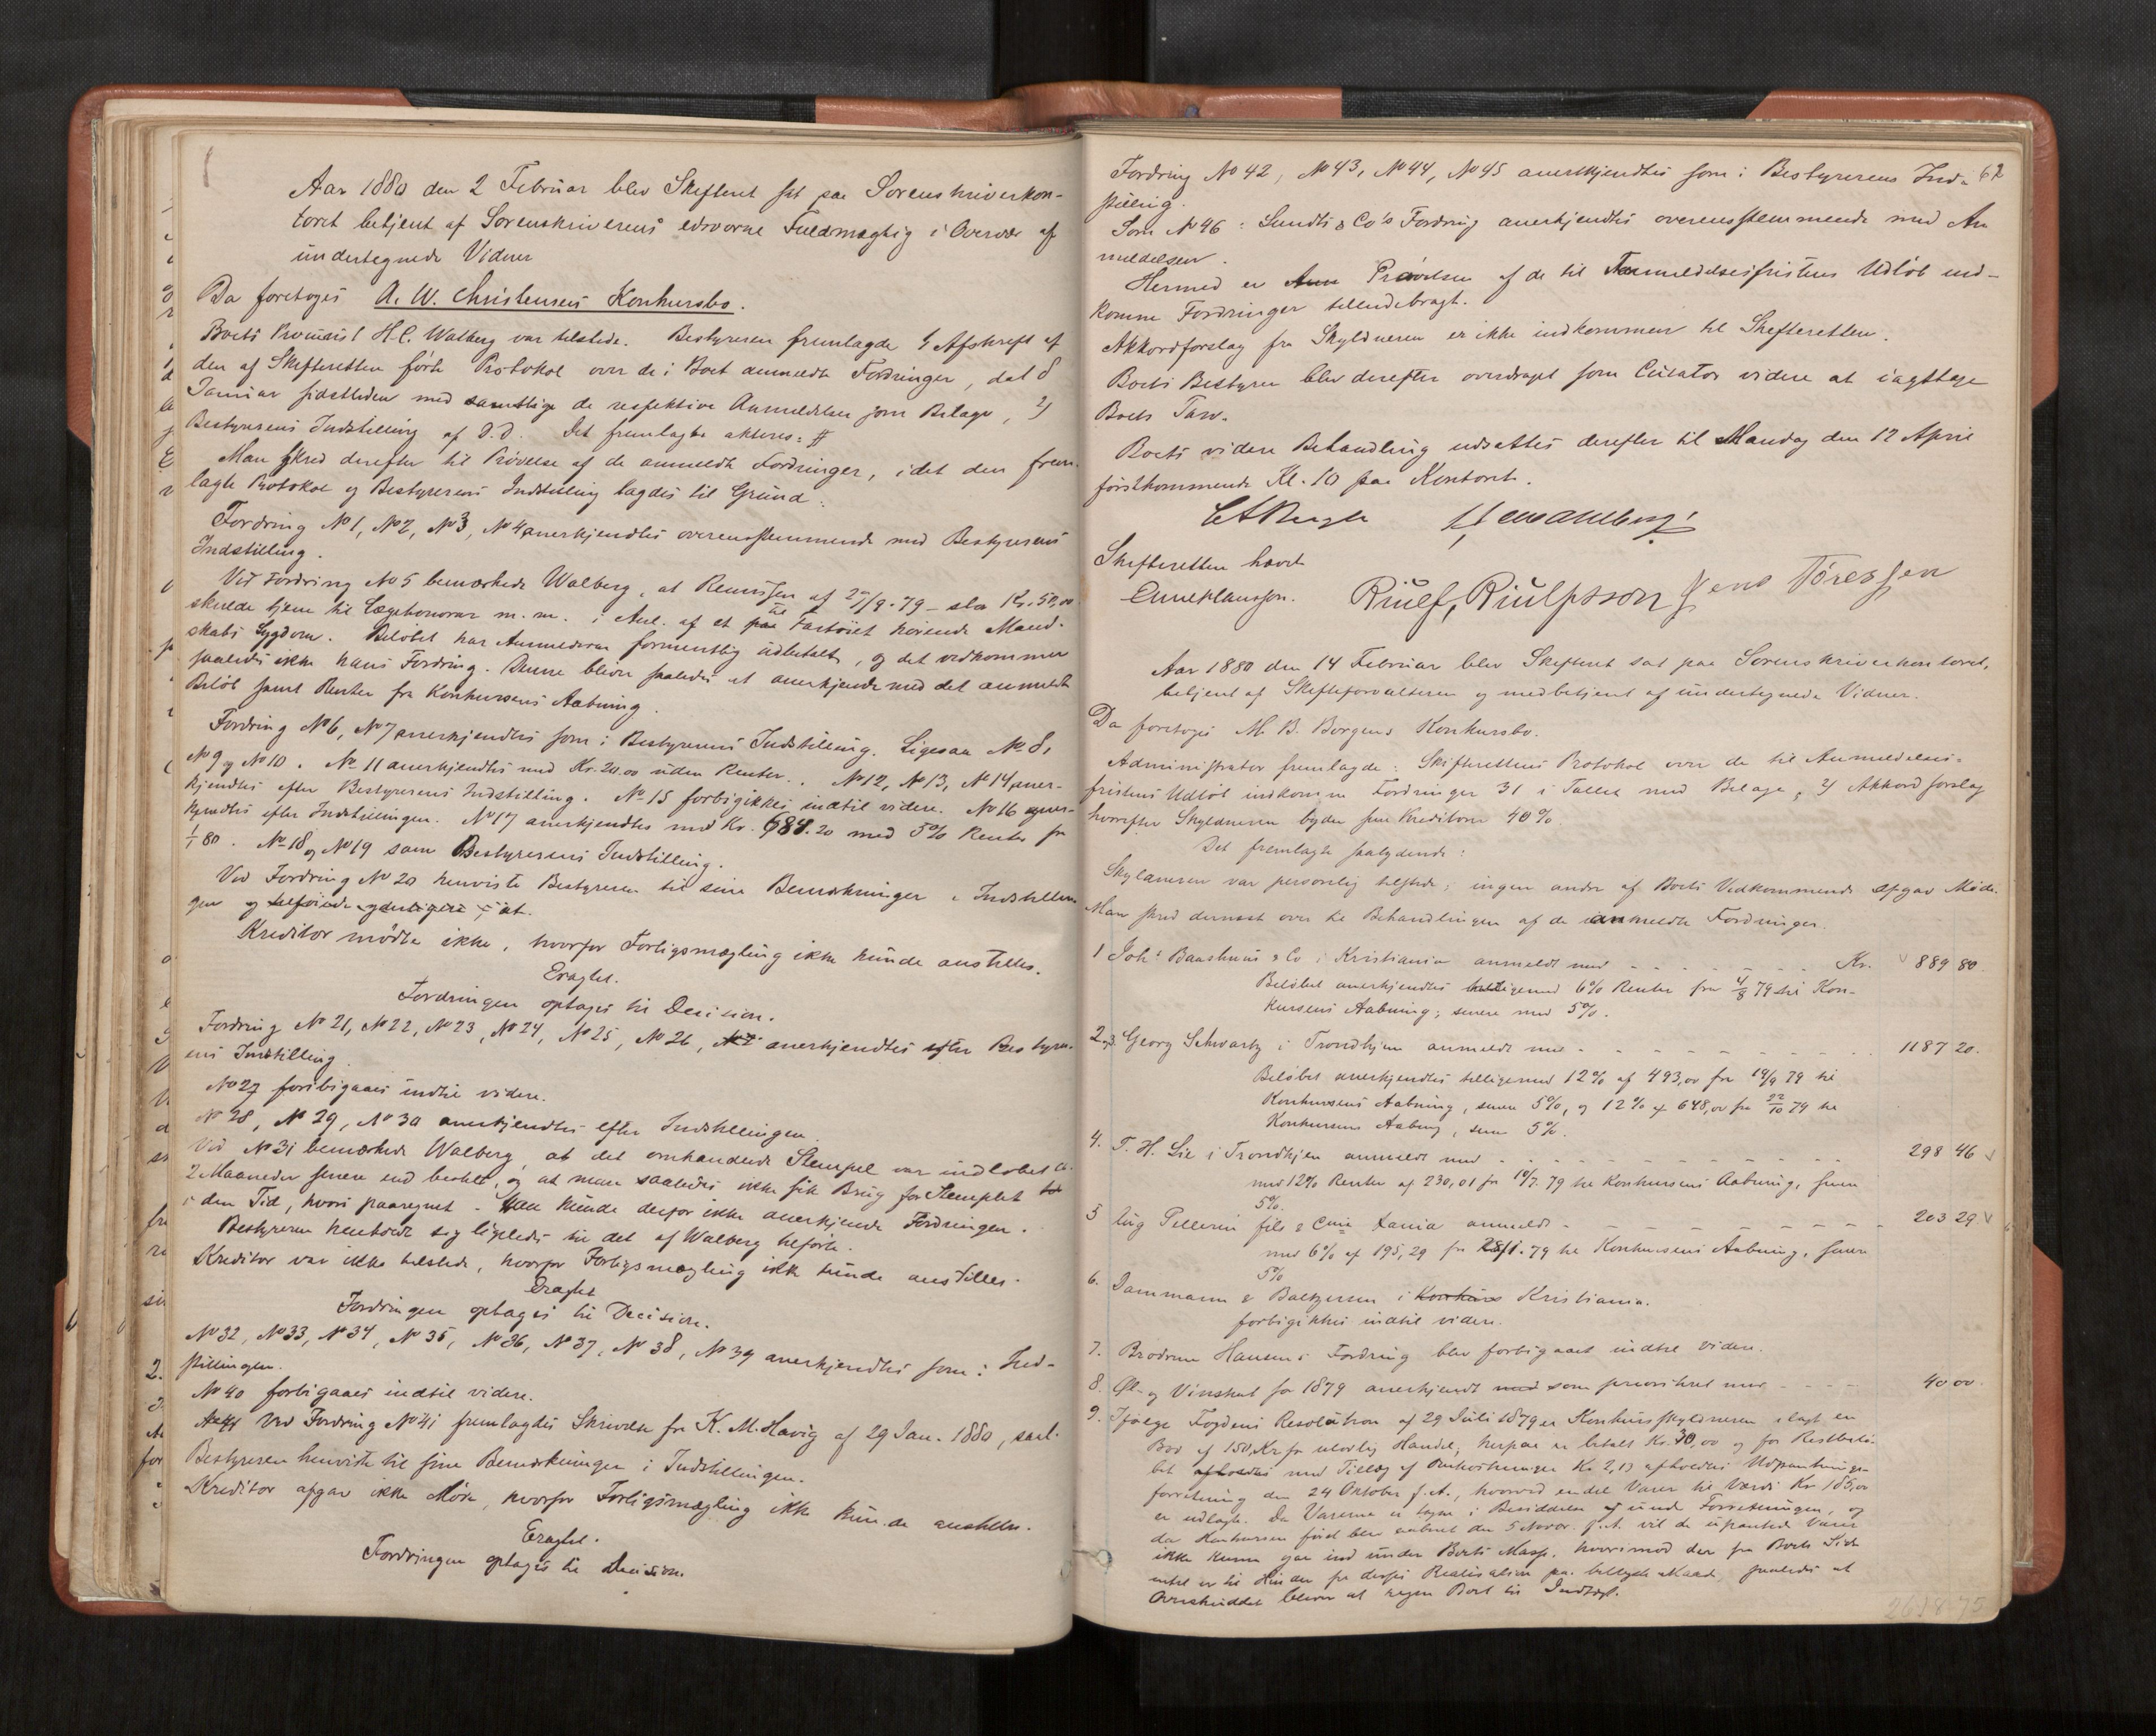 Aar 1880 den 2 Februar blev Skifteret sat paa Sorenskriverkon-
toret betjent af Sorenskriverens edsvorne Fuldmægtig i Overvær af
undertegnede Vidner
Da foretoges A. W. Christensens Konkursbo.
Boets H. C. Walberg var tilstede. Bestyreren fremlagde 1 Afskrift af
den af Skifteretten førte Protokol over de i Boet anmeldte Fordringer, dat 8
Januar sidstleden med samtlige de respektive Anmeldelser som Bilage, 2)
Bestyrerens Indstilling af D.D. Det fremlagte akteres: #
Man skred derefter til Prøvelse af de anmeldte Fordringer, idet den frem-
lagte Protokol og Bestyrerens Indstilling lagdes til Grund:
Fordring No 1, No 2, No 3, No 4 anerkjendtes overensstemmende med Bestyrerens
Indstilling.
Ved Fordring No 5 bemærkede Walberg, at Remissen af 27/9-79 - stor Kr. 50,00
skulde tjene til Lægehonorar m. m. i Anl. af et til Fartøiet hørende Mand-
skabs Sygdom. Beløbet har Anmelderen formentlig udbetalt, og det vedkommer
saaledes ikke hans Fordring. Denne bliver saaledes at anerkjende med det anmeldte
Beløb samt Renter fra Konkursens Aabning.
Fordring No 6, No 7 anerkjendtes som i Bestyrerens Indstilling. Ligesaa No 8,
No 9 og No 10. No 11 anerkjendtes med Kr. 20.00 uden Renter. No 12, No 13, No 14 aner-
kjendtes efter Bestyrerens Indstilling. No 15 forbigikkes indtil videre. No 16 aner-
kjendtes efter Indstillingen. No 17 anerkjendtes med Kr. 684.20 med 5% Renter fra
1/1 80. No 18 og No 19 som Bestyrerens Indstilling.
Ved Fordring No 20 henviste Bestyreren til sine Bemærkninger i Indstillin-
gen og tilføiede yderligere, at.
Kreditor mødte ikke, hvorfor Forligsmægling ikke kunde anstilles.
Eragtet.
Fordringen optages til Decision.
Fordring No 21, No 22, No 23, No 24, No 25, No 26, anerkjendtes efter Bestyrer-
ens Indstilling.
No 27 forbigaaes indtil videre.
No 28, No 29, No 30 anerkjendtes efter Indstillingen.
Ved No 31 bemærkede Walberg, at det omhandlede Stempel var indløbet ca.
2 Maaneder senere end bestilt, og at man saaledes ikke fik Brug for Stemplet
i den Tid, hvori paaregnet. Man kunde derfor ikke anerkjende Fordringen.
Bestyreren henholdt sig ligeledes til det af Walberg tilførte.
Kreditor var ikke tilstede, hvorfor Forligsmægling ikke kunde anstilles.
Eragtet
Fordringen optages til Decision.
No 32, No 33, No 34, No 35, No 36, No 37, No 38, No 39 anerkjendtes som i Ind-
stillingen.
No 40 forbigaaes indtil videre.
Ved Fordring No 41 fremlagdes Skrivelse fra K. M. Havig af 29 Jan. 1880, saal.
Bestyreren henviste til sine Bemærkninger i Indstillingen.
Kreditor afgav ikke Møde, hvorfor Forligsmægling ikke kunde anstilles.
Eragtet.
Fordringen optages til Decision.
62
Fordring No 42, No 43, No 44, No 45 anerkjendtes som i Bestyrerens Ind-
stilling.
Som No 46: Lundts & Co's Fordring anerkjendtes overensstemmende med An-
meldelsen.
Hermed er Prøvelsen af de til Anmeldelsesfristens Udløb ind-
komne Fordringer tilendebragt.
Akkordforslag fra Skyldneren er ikke indkommen til Skifteretten.
Boets Bestyrer blev derefter overdraget som Curator videre at iagttage
Boets Tarv.
Boets videre Behandling udsattes derefter til Mandag den 12 April
førstkommende Kl. 10 paa Kontoret.
Skifteretten hævet
Riulf, Riulfsson Jens Toressen
Aar 1880 den 14 Februar blev Skifteret sat paa Sorenskriverkontoret,
betjent af Skifteforvalteren og medbetjent af undertegnede Vidner.
Da foretoges M. B. Borgens Konkursbo.
Administrator fremlagde: Skifterettens Protokol over de til Anmeldelses-
fristens Udløb indkomne Fordringer 31 i Tallet med Bilage, 2) Akkordforslag
hvorefter Skyldneren byder sine Kreditorer 40%.
Det fremlagte saalydende:
Skyldneren var personlig tilstede; ingen andre af Boets Vedkommende afgav Møde.
Man skred dernæst over til Behandlingen af de anmeldte Fordringer.
1 Johs Baashuus & Co i Kristiania anmeldt med - - - Kr. 889 80.
Beløbet anerkjendtes tilligemed 6% Renter fra 4/8 79 til Kon-
kursens Aabning; senere med 5%.
2 og 3. Georg Schwartz i Trondhjem anmeldt med - - - 1187 20.
Beløbet anerkjendtes tilligemed 12% af 493,00 fra 19/9 79 til
Konkursens Aabning, senere 5%, og 12% af 648,00 fra 22/10 79 til
Konkursens Aabning, senere 5%.
4. T. H. Lie i Trondhjem anmeldt med - - - 298 46
med 12% Renter af 230,01 fra 10/7. 79 til Konkursens Aabning, senere
5%.
5 Aug Pellerin fils & Cnie Xania anmeldt - - - 203 29
med 6% af 195,29 fra 28/1. 79 til Konkursens Aabning, senere
5%
6. Dammann & Baltzersen i Kristiania.
forbigikkes indtil videre.
7. Brødrene Hansens Fordring blev forbigaaet indtil videre.
8. Øl- og Vinskat for 1879 anerkjendt som prioriteret med - - - 40 00.
9. Ifølge Fogdens Resolution af 29 Juli 1879 er Konkursskyldneren ilagt en
Bod af 150, Kr for ulovlig Handel; herpaa er betalt Kr. 30,00 og for Restbelø-
bet med Tillæg af Omkostninger Kr. 2,13 afholdtes Udpantnings-
forretning den 24 Oktober f. A., hvorved endel Varer til Værdi Kr 185,00
er udlagt. Da Varerne er tagne i Besiddelse under Forretningen, og
da Konkursen først blev aabnet den 5 Novbr. f. A. vil de udpantede Varer
ikke kunne gaa ind under Boets Masse, hvorimod der fra Boets Side
intet er til Hinder for deres Realisation paa lovlig Maade, saaledes at
Overskuddet bliver at Boet til Indtægt.